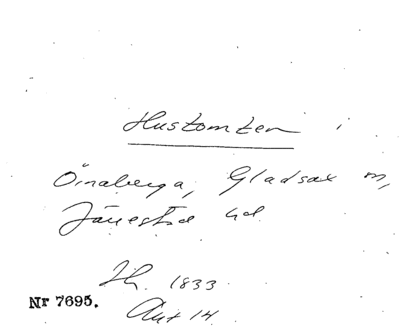 Hustomten i
Önaberga, Gladsax m,
Järrestad hd
Th. 1833
Nr 7695.
Aut 14